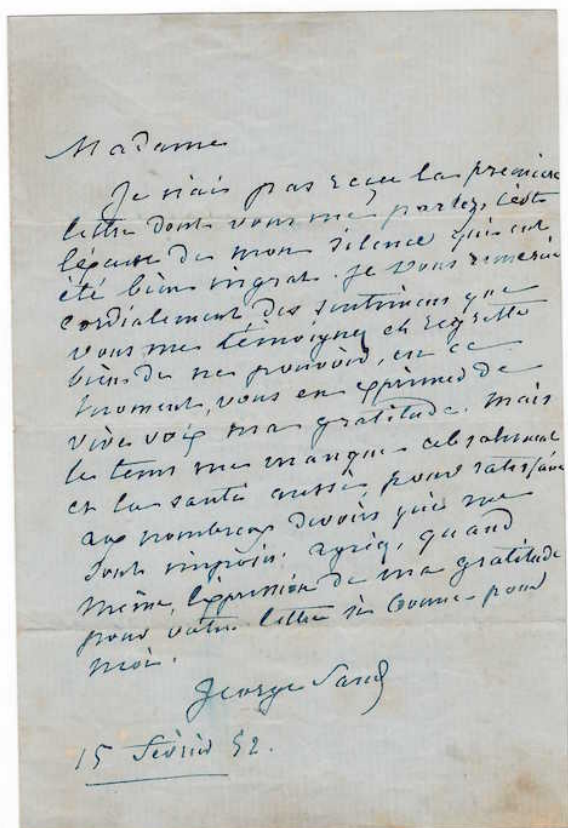 Madame
Je n'ai pas reçu la première
lettre dont vous me parlez, c'est
l'excuse de mon silence qui eut
été bien ingrat. Je vous remercie
cordialement des sentimens que
vous me témoignez et regrette
bien de ne pouvoir, en ce
moment, vous en exprimer de
vive voix ma gratitude. Mais
le tems me manque absolument
et la santé aussi, pour satisfaire
aux nombreux devoirs qui me
sont imposés. agréez, quand
même, l'expression de ma gratitude
pour votre lettre si bonne pour
moi.
George Sand
15 février 52.